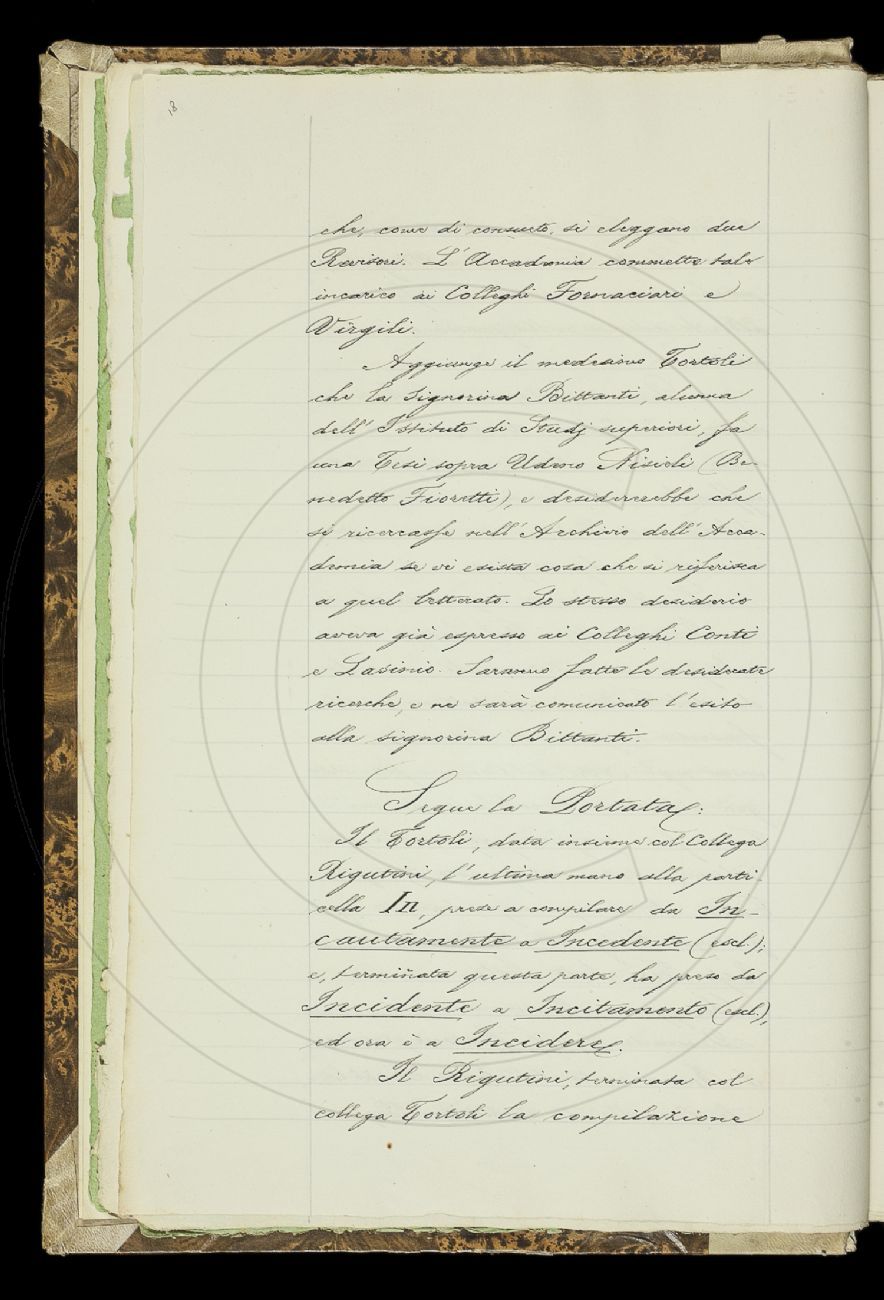 18
che, come di consueto, si eleggano due
Revisori. L'Accademia commette tale
incarico ai Colleghi Fornaciari e
Virgili.
Aggiunge il medesimo Tortoli
che la Signorina Bittanti, alunna
dell'Istituto di Studj superiori, fa
una Tesi sopra Udeno Nisieli (Be-
nedetto Fioretti), e desidererebbe che
si ricercasse nell'Archivio dell'Acca-
demia se vi esista cosa che si riferisca
a quel letterato. Lo stesso desiderio
aveva già espresso ai Colleghi Conti
e Lasinio. Saranno fatte le desiderate
ricerche, e ne sarà comunicato l'esito
alla signorina Bittanti.
Segue la Portata:
Il Tortoli, data insieme col Collega
Rigutini, l'ultima mano alla parti-
cella In, prese a compilare da In-
cautamente a Incedente (escl.);
e, terminata questa parte, ha preso da
Incidente a Incitamento (escl.),
ed ora è a Incidere.
Il Rigutini, terminata col
collega Tortoli la compilazione